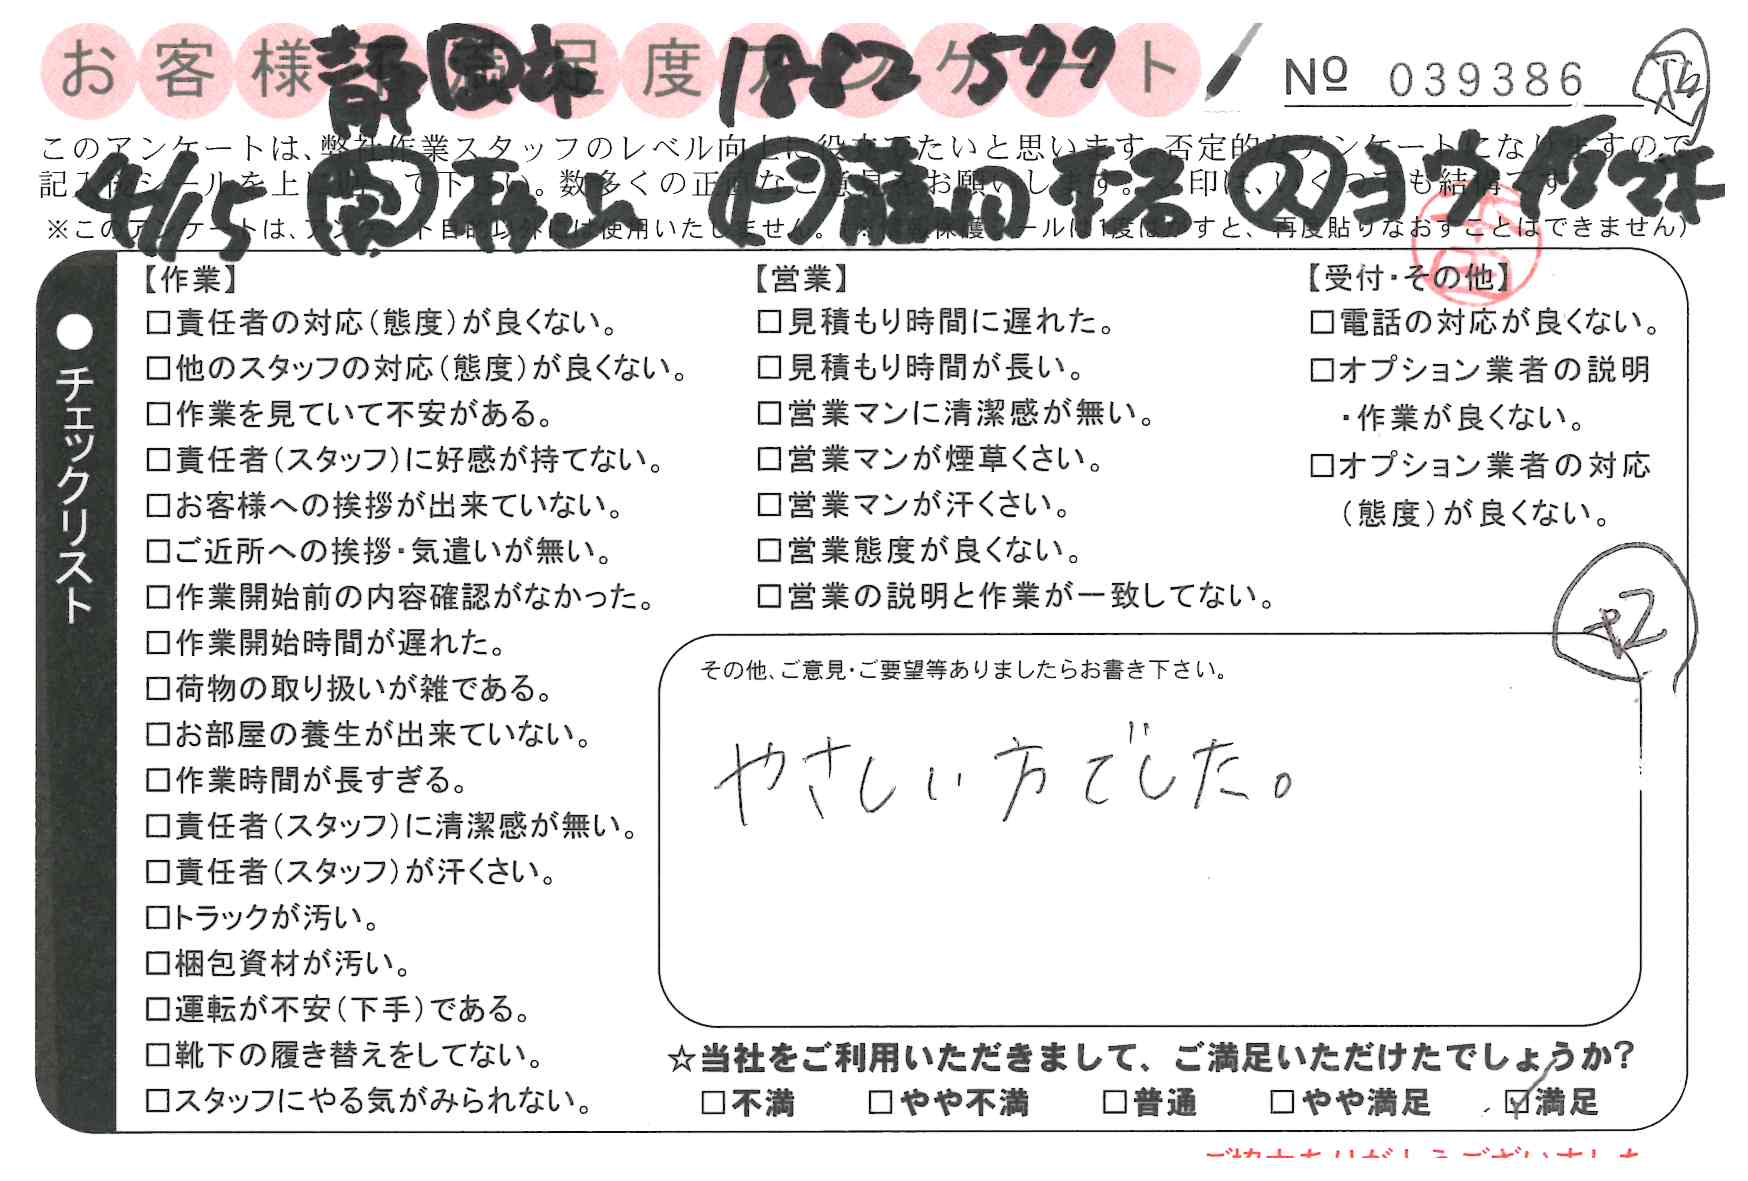 お客様不満足度アンケート
静岡本 1882577
№ 039386
このアンケートは、弊社作業スタッフのレベル向上に役立てたいと思います。否定的なアンケートになりますので
4/15
※このアンケートは、アンケート目的以外には使用いたしません。
チェックリスト
【作業】
□責任者の対応（態度）が良くない。
□他のスタッフの対応（態度）が良くない。
□作業を見ていて不安がある。
□責任者（スタッフ）に好感が持てない。
□お客様への挨拶が出来ていない。
□ご近所への挨拶・気遣いが無い。
□作業開始前の内容確認がなかった。
□作業開始時間が遅れた。
□荷物の取り扱いが雑である。
□お部屋の養生が出来ていない。
□作業時間が長すぎる。
□責任者（スタッフ）に清潔感が無い。
□責任者（スタッフ）が汗くさい。
□トラックが汚い。
□梱包資材が汚い。
□運転が不安（下手）である。
□靴下の履き替えをしてない。
□スタッフにやる気がみられない。
【営業】
□見積もり時間に遅れた。
□見積もり時間が長い。
□営業マンに清潔感が無い。
□営業マンが煙草くさい。
□営業マンが汗くさい。
□営業態度が良くない。
□営業の説明と作業が一致してない。
【受付・その他】
□電話の対応が良くない。
□オプション業者の説明
・作業が良くない。
□オプション業者の対応
（態度）が良くない。
+2
その他、ご意見・ご要望等ありましたらお書き下さい。
やさしい方でした。
☆当社をご利用いただきまして、ご満足いただけたでしょうか？
□不満 □やや不満 □普通 □やや満足 ☑満足
ご協力ありがとうございました